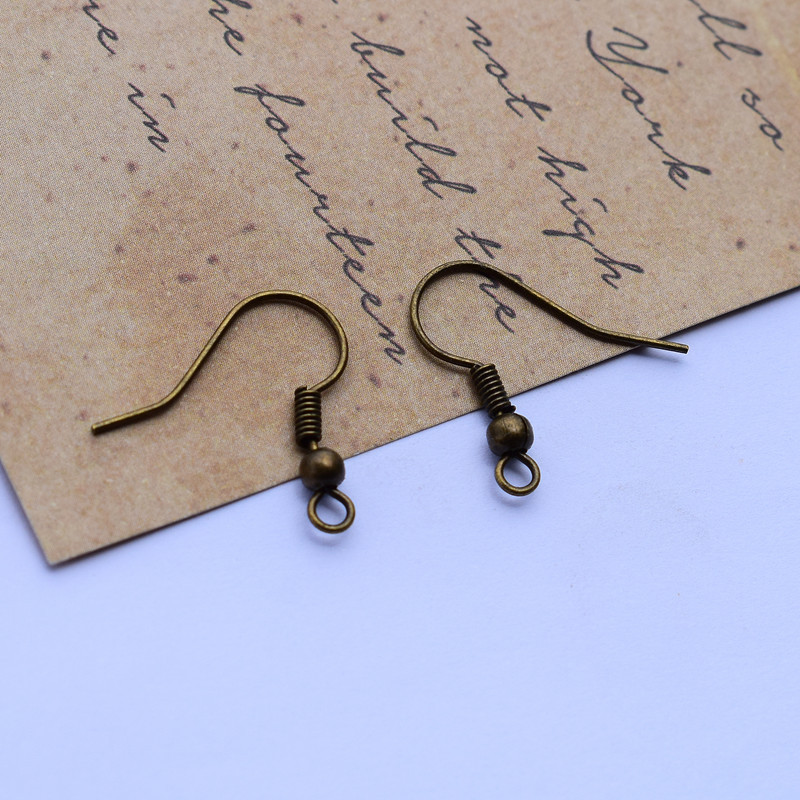 ll so
York
not high
build the
he fourteen
in